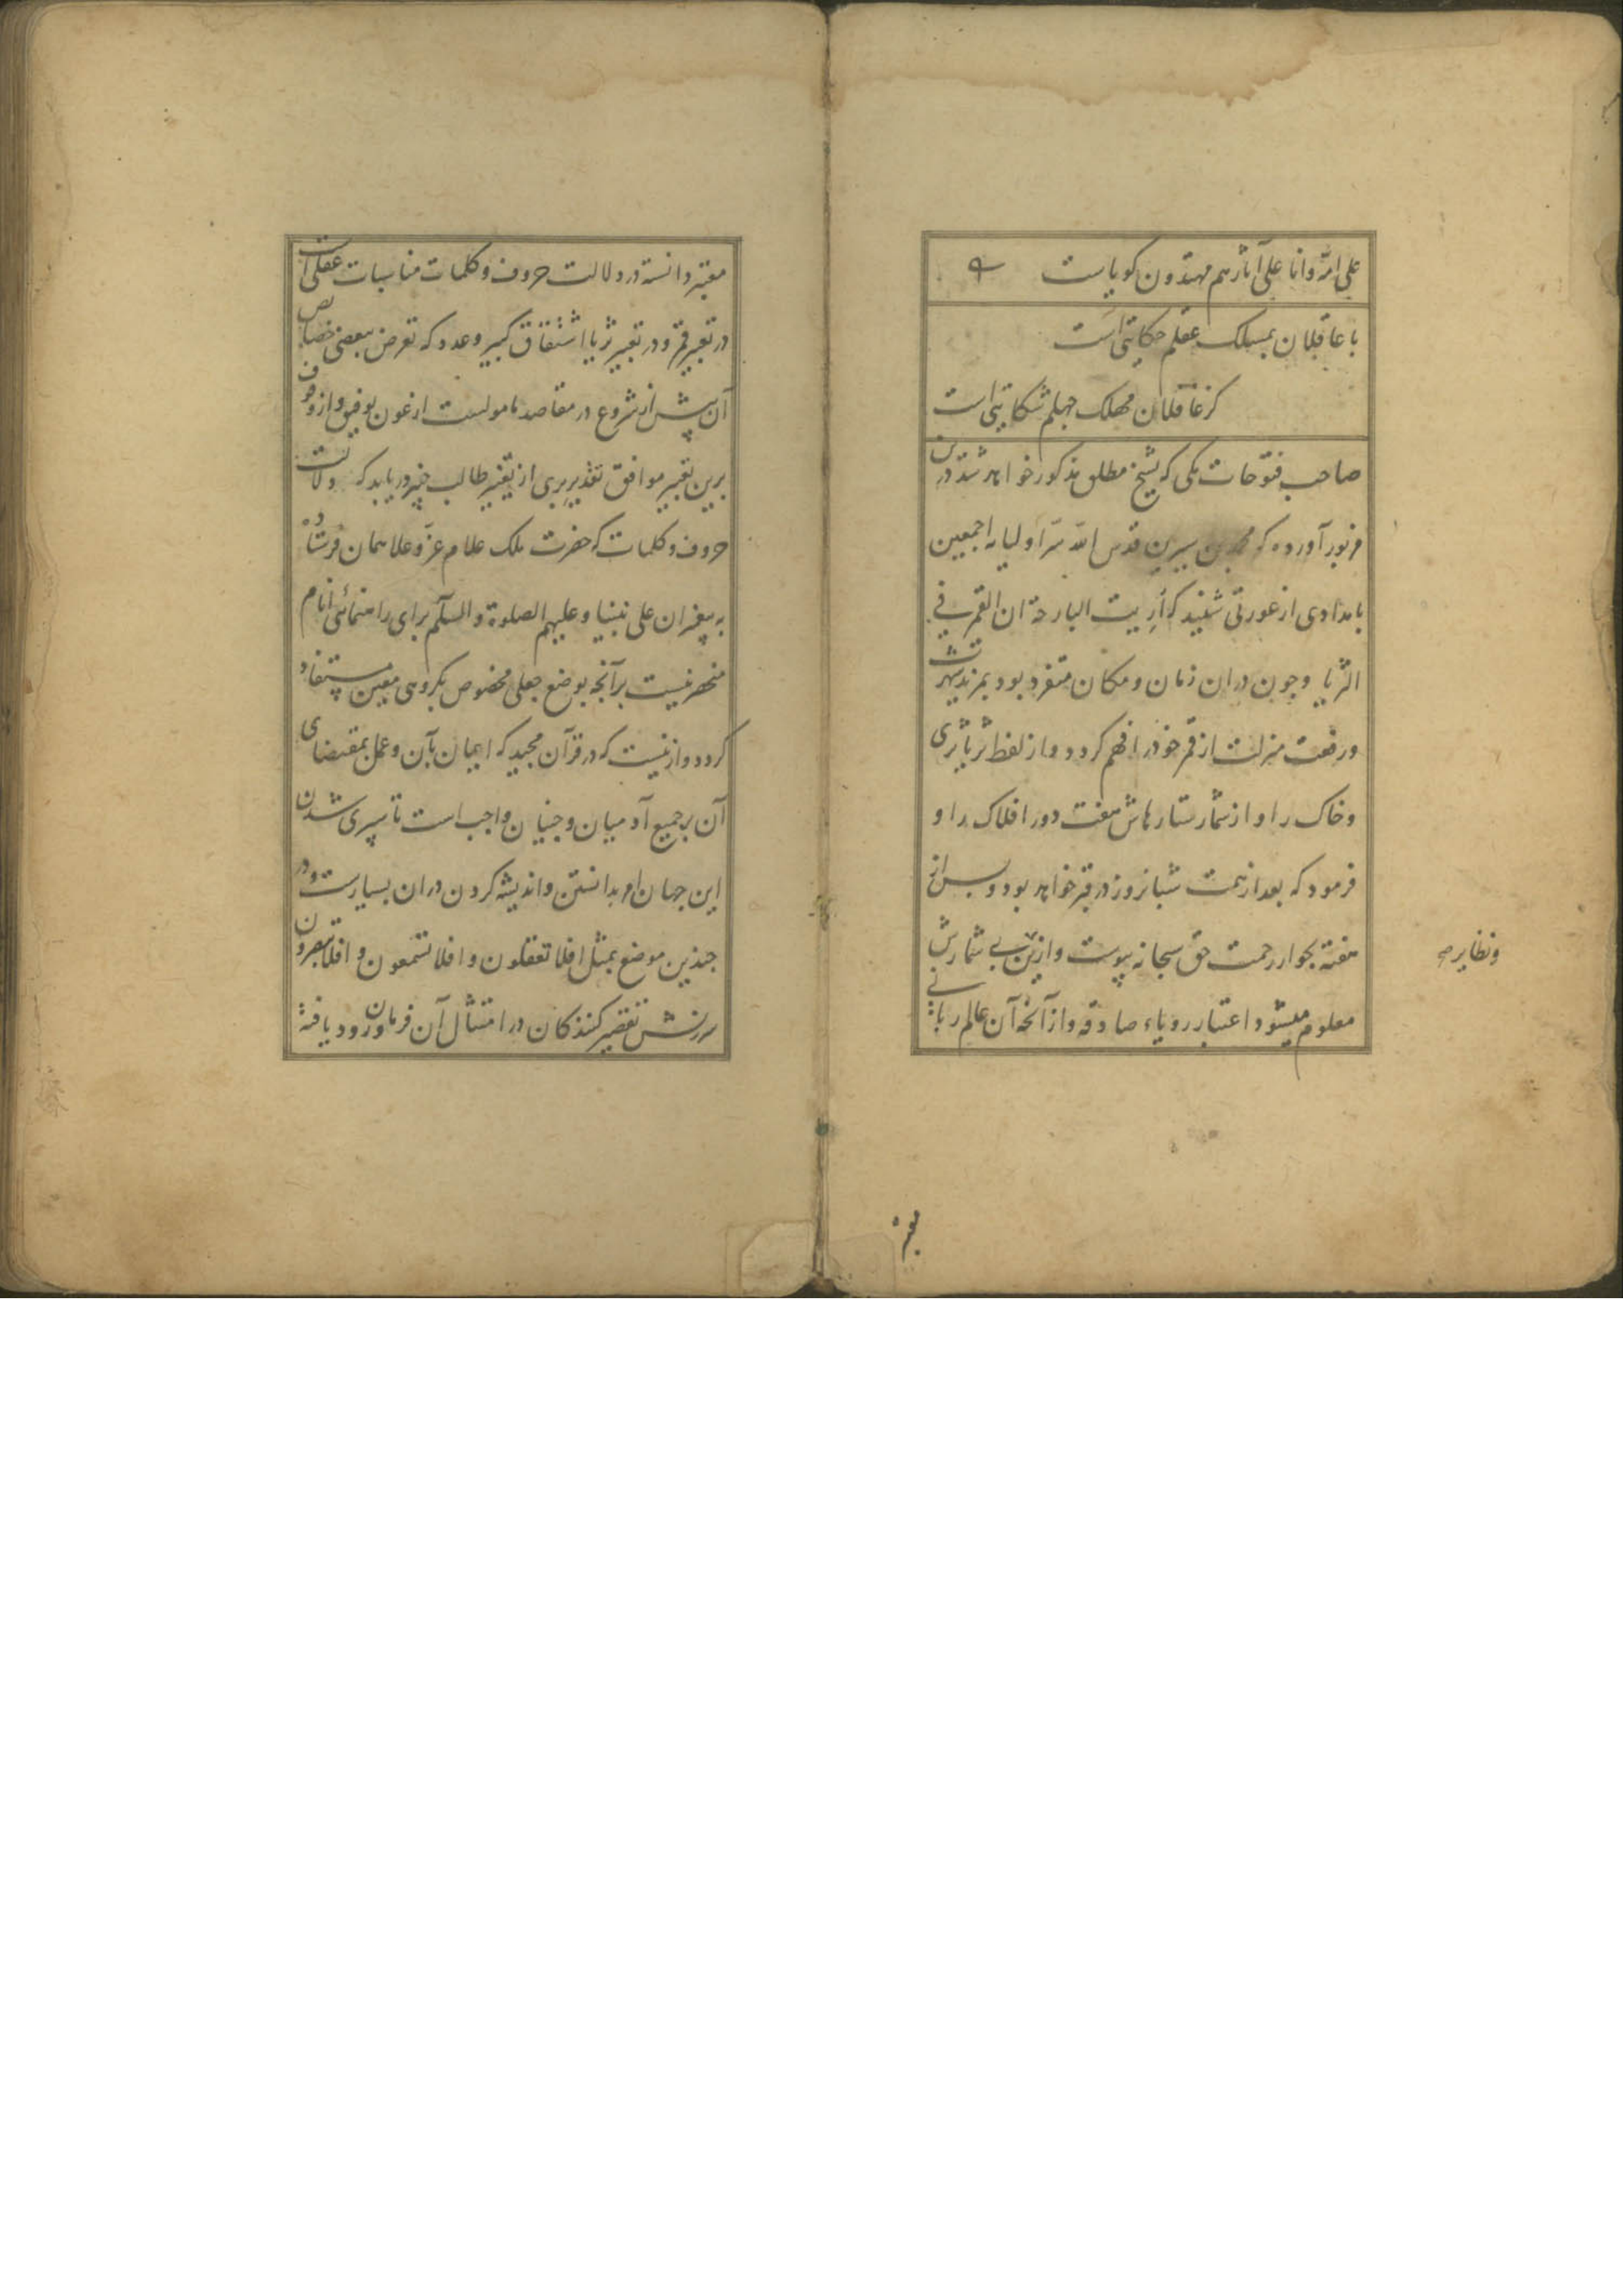 علی امة وانا علی آثارهم مهتدون کویاست
با عاقلان بمسلک عقلم حکایتی است
کز غافلان مهلک جهلم شکایتی است
صاحب فتوحات مکی که بشیخ مطلق مذکور خواهد شد درین
مزبور آورده که محمد بن سیرین قدس الله سرّ اولیایه اجمعین
بامدادی از عورتی شنید که أُریت البارحة ان القمر فی
الثریا وچون دران زمان ومکان متفرد بود بمزید شهرت
ورفعت منزلت از قمر خود را فهم کرد و از لفظ ثریا ثری
وخاک را و از شمار ستارهاش هفت دور افلاک را و
فرمود که بعد از هفت شبانروز در قبر خواهد بود وپس از
هفته بجوار رحمت حق سبحانه پیوست وازین بی شمارش
ونظایر
معلوم میشود اعتبار رویاء صادقه واز آنکه آن عالم ربانی
معتبر
معتبر دانسته در دلالت حروف وکلمات مناسبات عقلی است
در تعبیر قمر و در تعبیر ثریا اشتقاق کبیر وعدد که تعرض ببعضی خصایص
آن پیش از شروع در مقاصد مامولست از عون توفیق واز وقوف
برین تعبیر موافق تقدیر بری از تغییر طالب خبیر دریابد که دلالت
حروف وکلمات که حضرت ملک علام عزّ وعلا همان فرستاده
به پیغمبران علی نبینا وعلیهم الصلوة والسلم برای راهنمائی انام
منحصر نیست برآنچه بوضع جعلی مخصوص بکروهی معین مستفاد
کردد وازینست که در قرآن مجید که ایمان بآن وعمل بمقتضای
آن بر جمیع آدمیان وجنیان واجب است تا سپری شدن
این جهان امر بدانستن واندیشه کردن دران بسیارست ودر
چندین موضع بمثل افلا تعقلون و افلا تسمعون و افلا تبصرون
سرزنش تقصیر کنندکان در امتثال آن فرمان ورود یافته